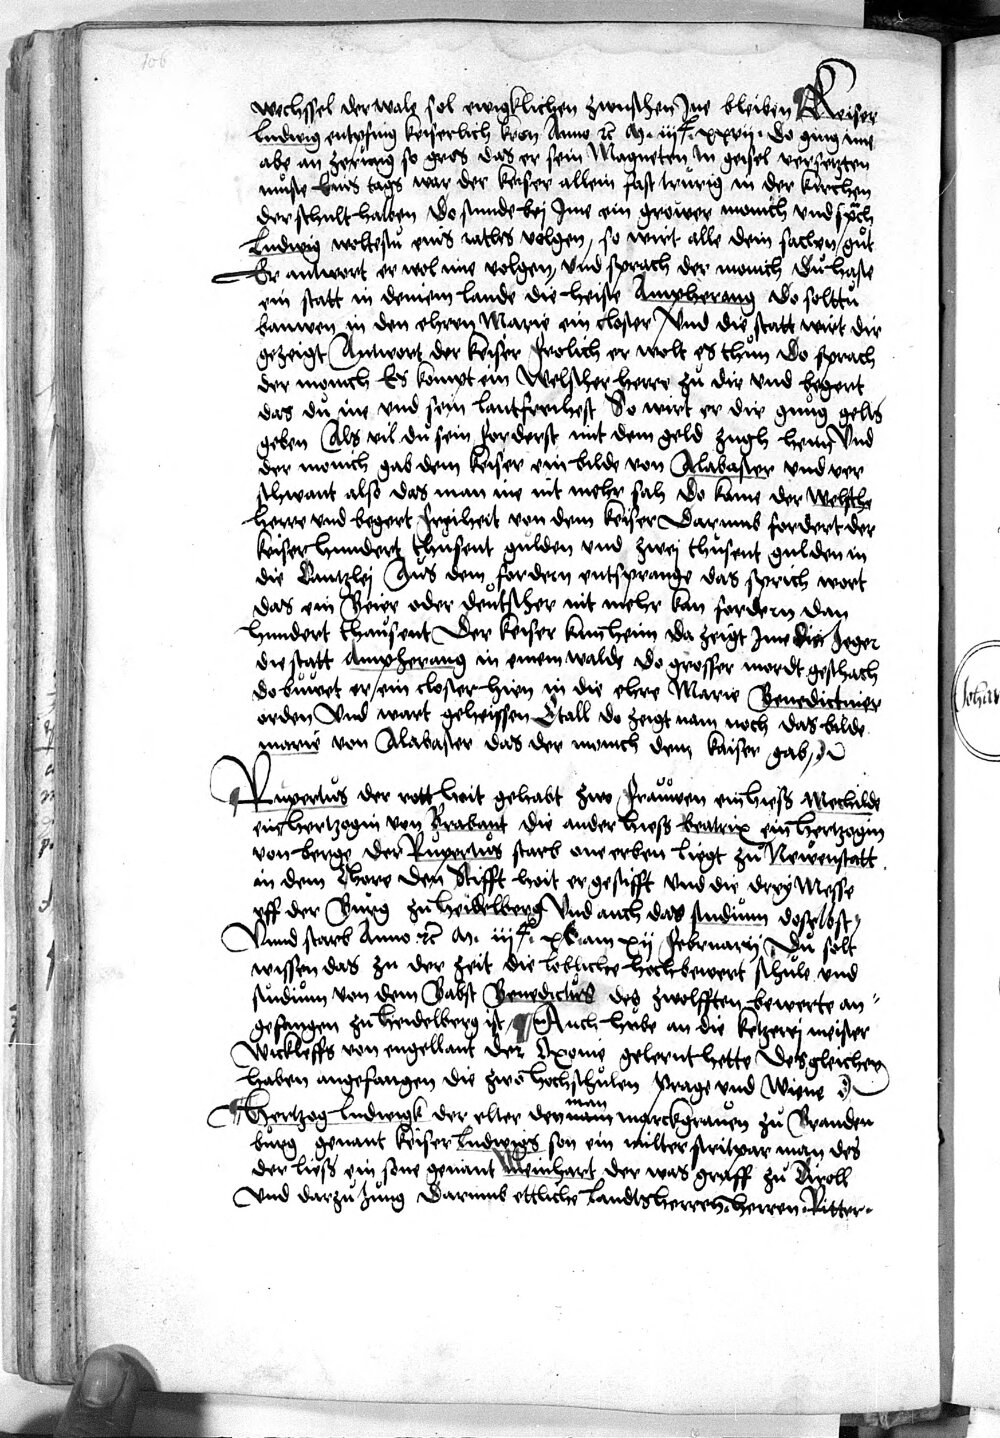 106
wechssel der wale sol ewigklichen zwuschen Jne bleiben Keiser
Ludwig entpfing keiserlich kron Anno rc M. iijc. xxvij. Do ging ime
abe an zerung so gros das er sein Magneten in geisel versetzten
muste Eins tags war der keiser allein fast trurig in der kirchen
der schult halben Do stunde bej Jme ein grower monich vnd sprach
Ludwig woltestu eins rathes volgen, so wirt alle dein sachen gut
Er antwort er wol ime volgen, vnd sprach der monich Du haste
ein statt in deinem lande die heist Ampherang Do solttu
bauwen in den ehren Marie ein closter Vnd die statt wirt dir
gezeigt Antwort der keiser frolich er wolt es thun Do sprach
der monich Es kompt ein Welscher herre zu dir vnd begert
das du ine vnd sein lant freihest So wirt er dir gnug gelts
geben Als vil du sein forderst mit dem geld zugh heim Vnd
der monich gab dem keiser ein bilde von Alabaster vnd ver
schwant also das man ine nit mehr sah Do kame der welsche
herre vnd begert freiheit von dem keiser Darumb fordert der
keiser hundert thusent gulden vnd zwej thusent gulden in
die Cantzlej Aus dem fordern entsprange das sprich wort
das ein Beier oder deutscher nit mehr kan fordern dan
hundert thausent Der keiser kam heim da zeigt Jme ein Jeger
die statt Ampherang in einem walde do grosser mordt geschach
do buwet er ein closter hien in die ehre Marie Benedictiner
orden Vnd wart geheissen Etall do zeigt man noch das bilde
marie von Alabaster das der monich dem kaiser gab
Rupertus der rott hait gehabt zwo frauwen ein hiess Mechilde
ein hertzogin von Brabant die ander hiess beatrix ein hertzogin
von berge Der Rupertus starb one erben ligt zu Newenstatt
in dem Chore Den Stifft hait er gestifft vnd die drey Messe
vff der Burg zu Heidelberg Vnd auch das studium doselbst
Vnnd starb Anno rc M. iijc. xc. am xij februarij Du solt
wissen das zu der zeit die lobliche hochbewert schule vnd
studium von dem Babst Benedictus des zwolfften bewerte an
gefangen zu Heidelberg ist, Auch hube an die ketzerej meister
Wickleffs von engellant der Oxonie gelernt hette Desgleichen
haben angefangen die zwo hochschulen Prage vnd Wiene
man
Hertzog Ludwigk der elter den nam marckgrauen zu Branden
burg genant keiser Ludwigs son ein milter stritpar man des
der liess ein sone genant Meinhart der was graff zu Tiroll
vnd darzu Jung Darumb ettliche Landtsherren. herren. Ritter.